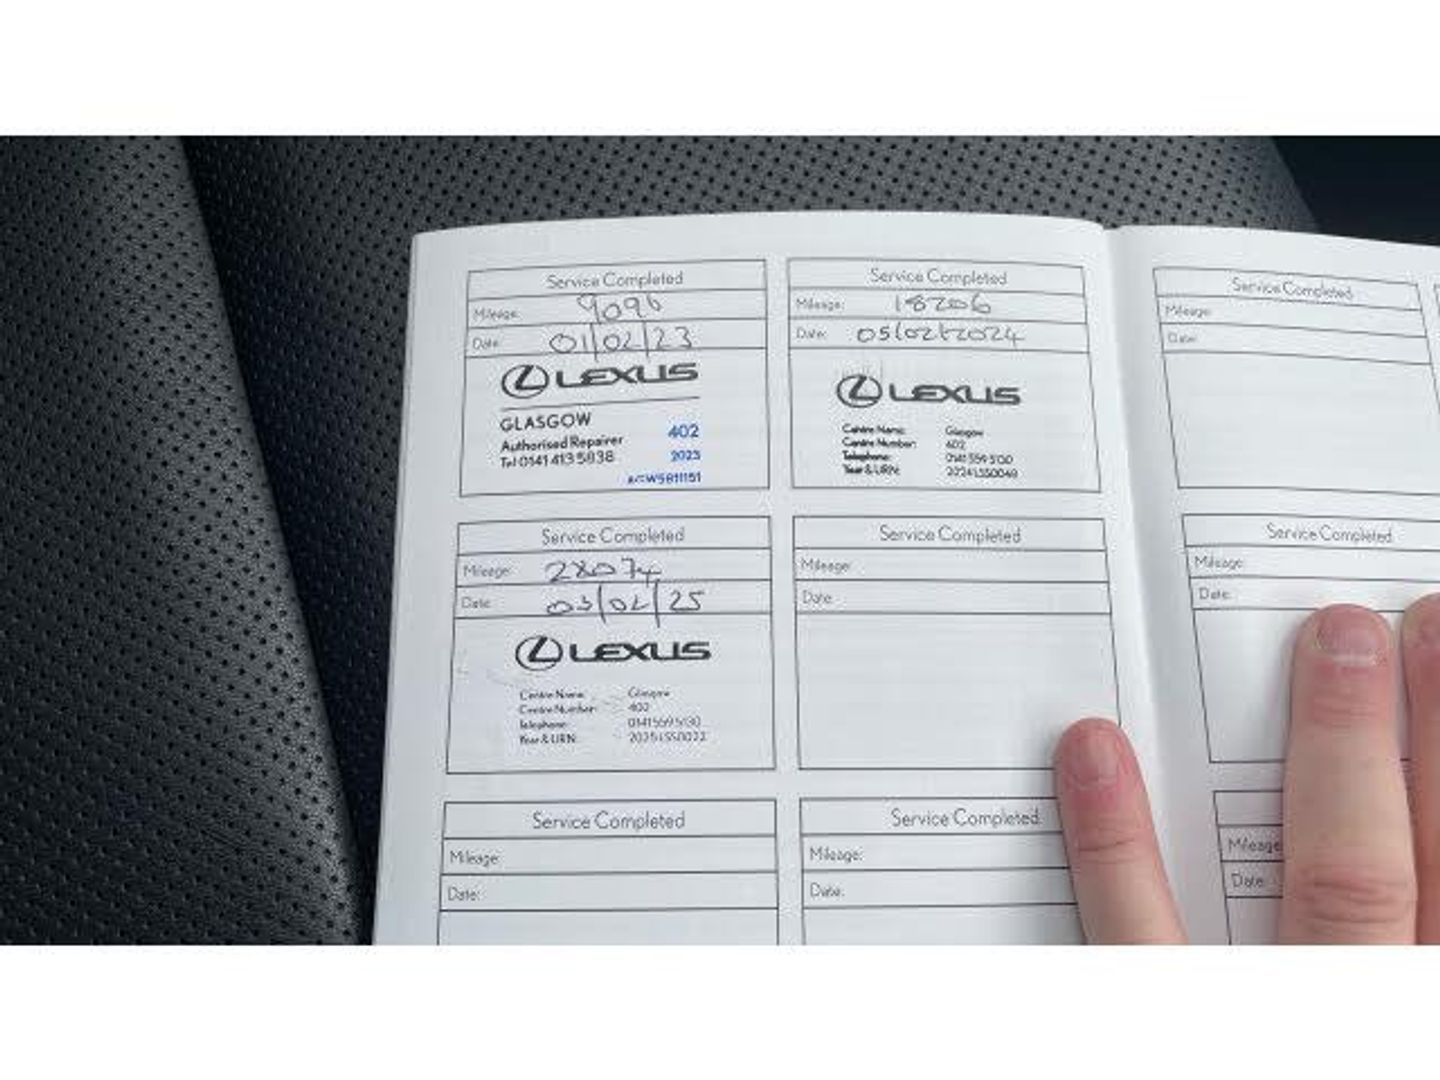 Service Completed
Mileage: 9096
Date: 01/02/23
LEXUS
GLASGOW
Authorised Repairer 402
Tel 0141 413 5838 2023
Service Completed
Mileage: 18206
Date: 05/02/2024
LEXUS
Centre Name: Glasgow
Centre Number: 402
Telephone:
Year & URN:
Service Completed
Mileage:
Date:
Service Completed
Mileage: 28074
Date: 03/02/25
LEXUS
Centre Name: Glasgow
Centre Number: 402
Telephone:
Year & URN:
Service Completed
Mileage:
Date:
Service Completed
Mileage:
Date:
Service Completed
Mileage:
Date:
Service Completed
Mileage:
Date:
Mileage
Date: